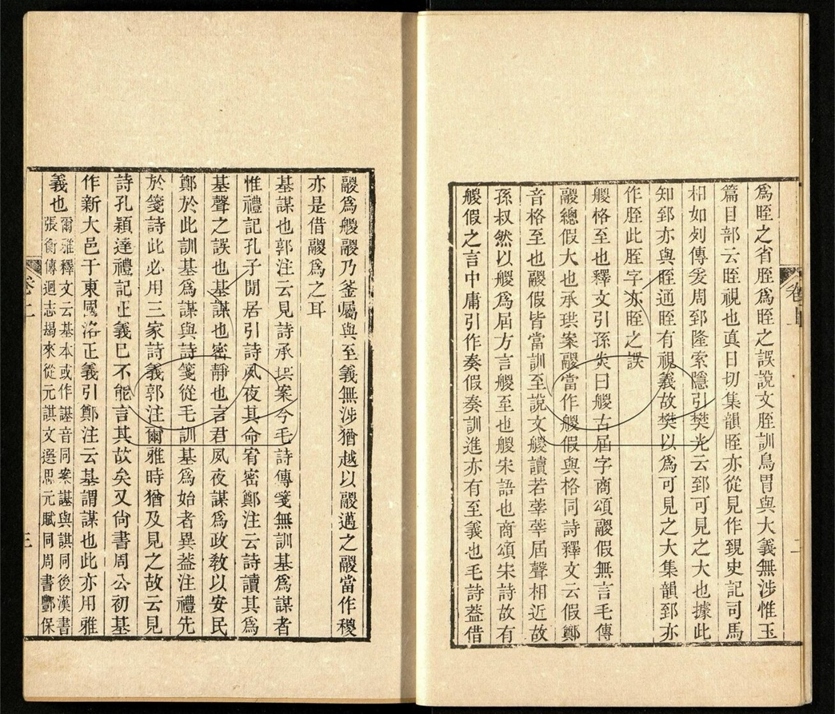 為晊之省胵為晊之誤說文胵訓鳥胃與大義無涉惟玉
篇目部云晊視也真日切集韻晊亦從見作䚇史記司馬
相如列傳爰周郅隆索隱引樊光云郅可見之大也據此
知郅亦與晊通晊有視義故樊以為可見之大集韻郅亦
作胵此胵字亦晊之誤
艐格至也釋文引孫炎曰艐古屆字商頌鬷假無言毛傳
鬷總假大也承珙案鬷當作艐假與格同詩釋文云假鄭
音格至也鬷假皆當訓至說文艐讀若莘莘屆聲相近故
孫叔然以艐為屆方言艐至也艐宋語也商頌宋詩故有
艐假之言中庸引作奏假奏訓進亦有至義也毛詩葢借
鬷為艐鬷乃釜屬與至義無涉猶越以鬷邁之鬷當作稯
亦是借鬷為之耳
基謀也郭注云見詩承珙案今毛詩傳箋無訓基為謀者
惟禮記孔子閒居引詩夙夜其命宥密鄭注云詩讀其為
基聲之誤也基謀也密靜也言君夙夜謀為政敎以安民
鄭於此訓基為謀與詩箋從毛訓基為始者異葢注禮先
於箋詩此必用三家詩義郭注爾雅時猶及見之故云見
詩孔穎達禮記正義已不能言其故矣又尙書周公初基
作新大邑于東國洛正義引鄭注云基謂謀也此亦用雅
義也爾雅釋文云基本或作諆音同案諆與諆同後漢書
張衡傳迴志朅來從元諆文選思元賦同周書酆保
卷上
二
卷上
三